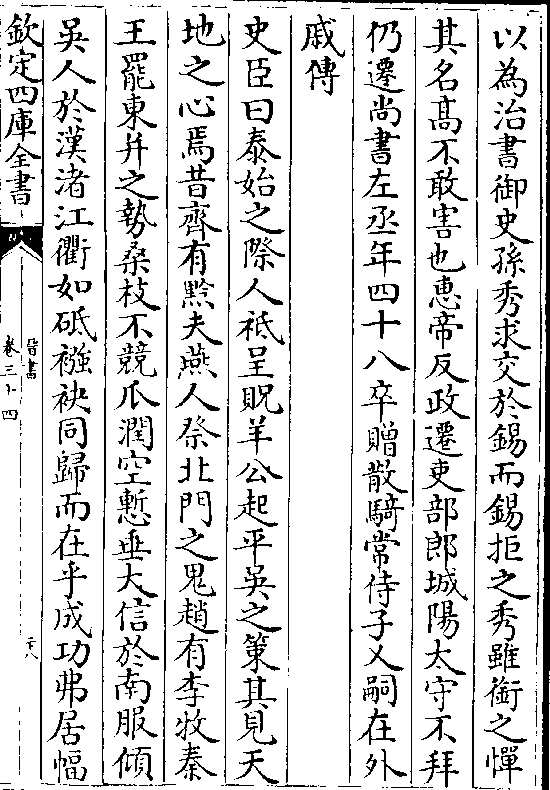 以為治書御史孫秀求交於錫而錫拒之秀雖銜之憚
其名髙不敢害也恵帝反政遷吏部郎城陽太守不拜
仍遷尚書左丞年四十八卒贈散騎常侍子乂嗣在外
戚傳
史臣曰泰始之際人祗呈貺羊公起平吳之策其見天
地之心焉昔齊有黔夫燕人祭北門之鬼趙有李牧秦
王罷東并之勢桑枝不競瓜潤空慙垂大信於南服傾
吳人於漢渚江衢如砥襁袂同歸而在乎成功弗居幅
欽定四庫全書
晉書
卷三十四
二十八